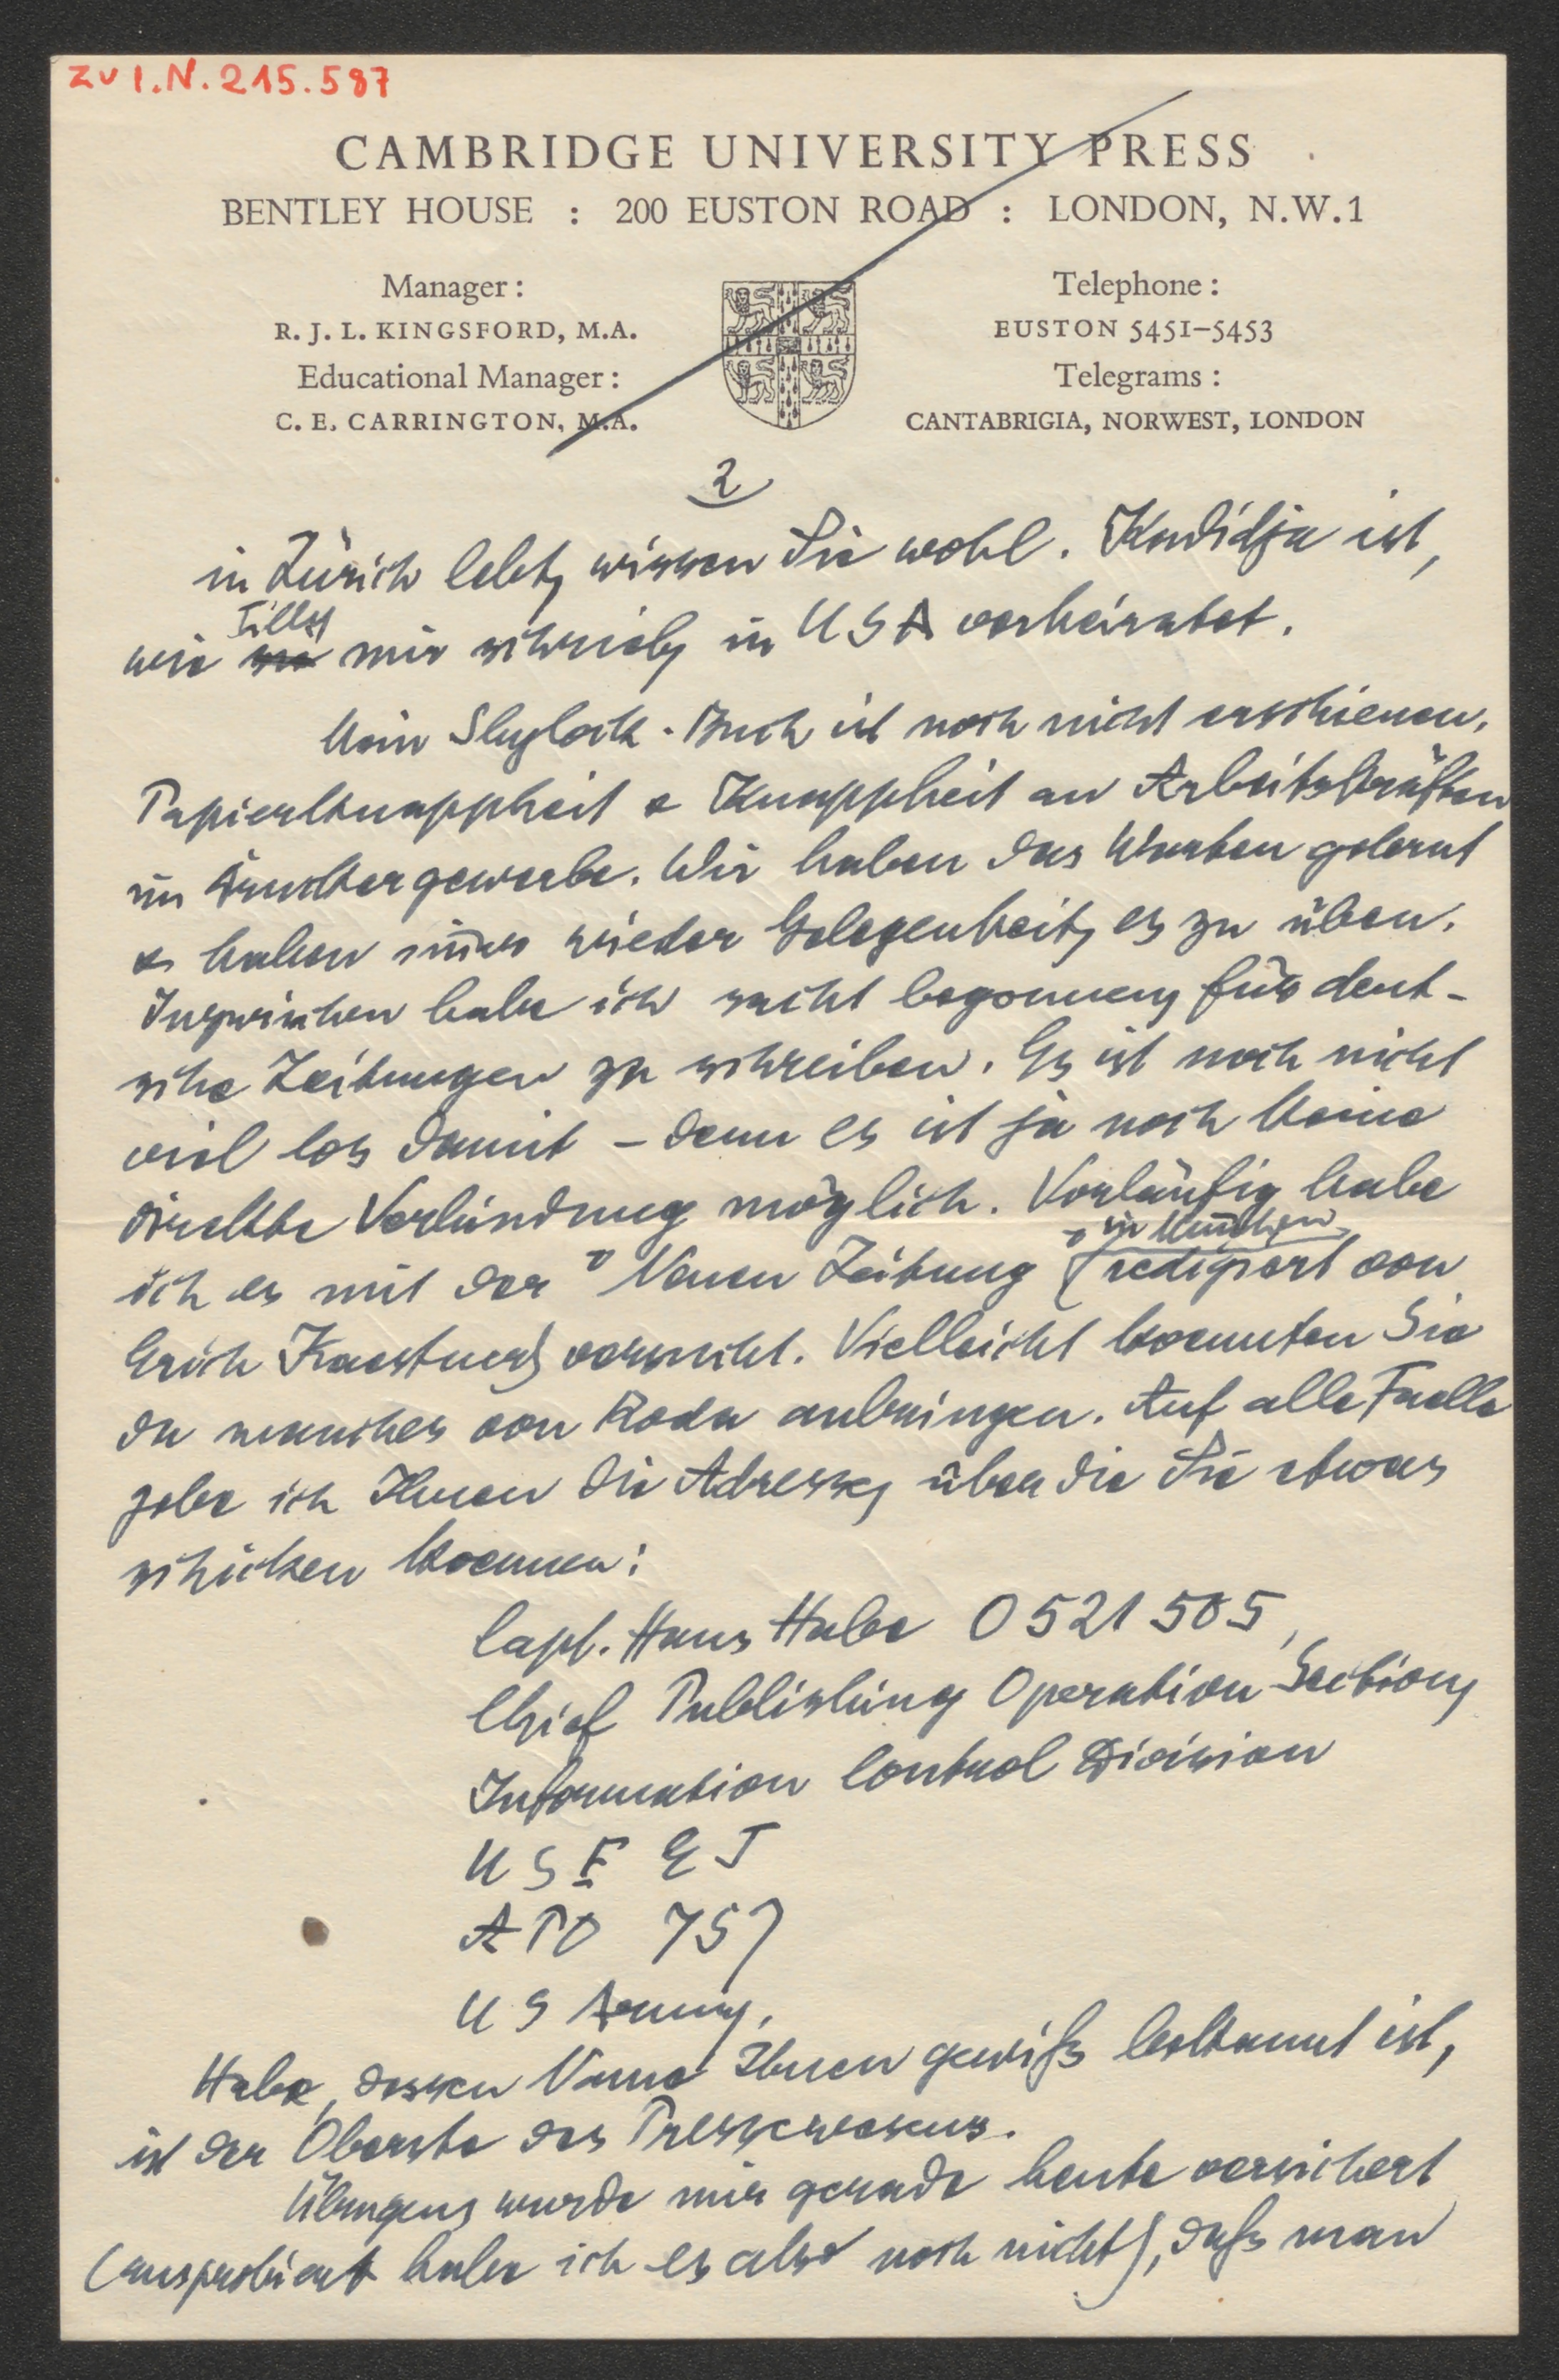 ZU I.N. 215.587
CAMBRIDGE UNIVERSITY PRESS
BENTLEY HOUSE : 200 EUSTON ROAD : LONDON, N.W.1
Manager :
R. J. L. KINGSFORD, M.A.
Educational Manager :
C. E. CARRINGTON, M.A.
Telephone :
EUSTON 5451–5453
Telegrams :
CANTABRIGIA, NORWEST, LONDON
2
in Zürich lebt, wissen Sie wohl. Kadidja ist,
wie Tilly mir schrieb, in USA verheiratet.
Mein Shylock-Buch ist noch nicht erschienen.
Papierknappheit & Knappheit an Arbeitskräften
im Druckergewerbe. Wir haben das Warten gelernt
& haben immer wieder Gelegenheit, es zu üben.
Inzwischen habe ich sacht begonnen, für deut-
sche Zeitungen zu schreiben. Es ist noch nicht
viel los damit – denn es ist ja noch keine
direkte Verbindung möglich. Vorläufig habe
ich es mit der "Neuen Zeitung" in München (redigiert von
Erich Kaestner) versucht. Vielleicht koennten Sie
da manches von Roda anbringen. Auf alle Faelle
gebe ich Ihnen die Adresse, über die Sie etwas
schicken koennen:
Capt. Hans Habe O 521 505,
Chief Publishing Operation Section,
Information Control Division
U S F E T
A P O 757
U S Army.
Habe, dessen Name Ihnen gewiß bekannt ist,
ist der Oberste des Pressewesens.
Übrigens wurde mir gerade heute versichert
(ausprobiert habe ich es also noch nicht), daß man